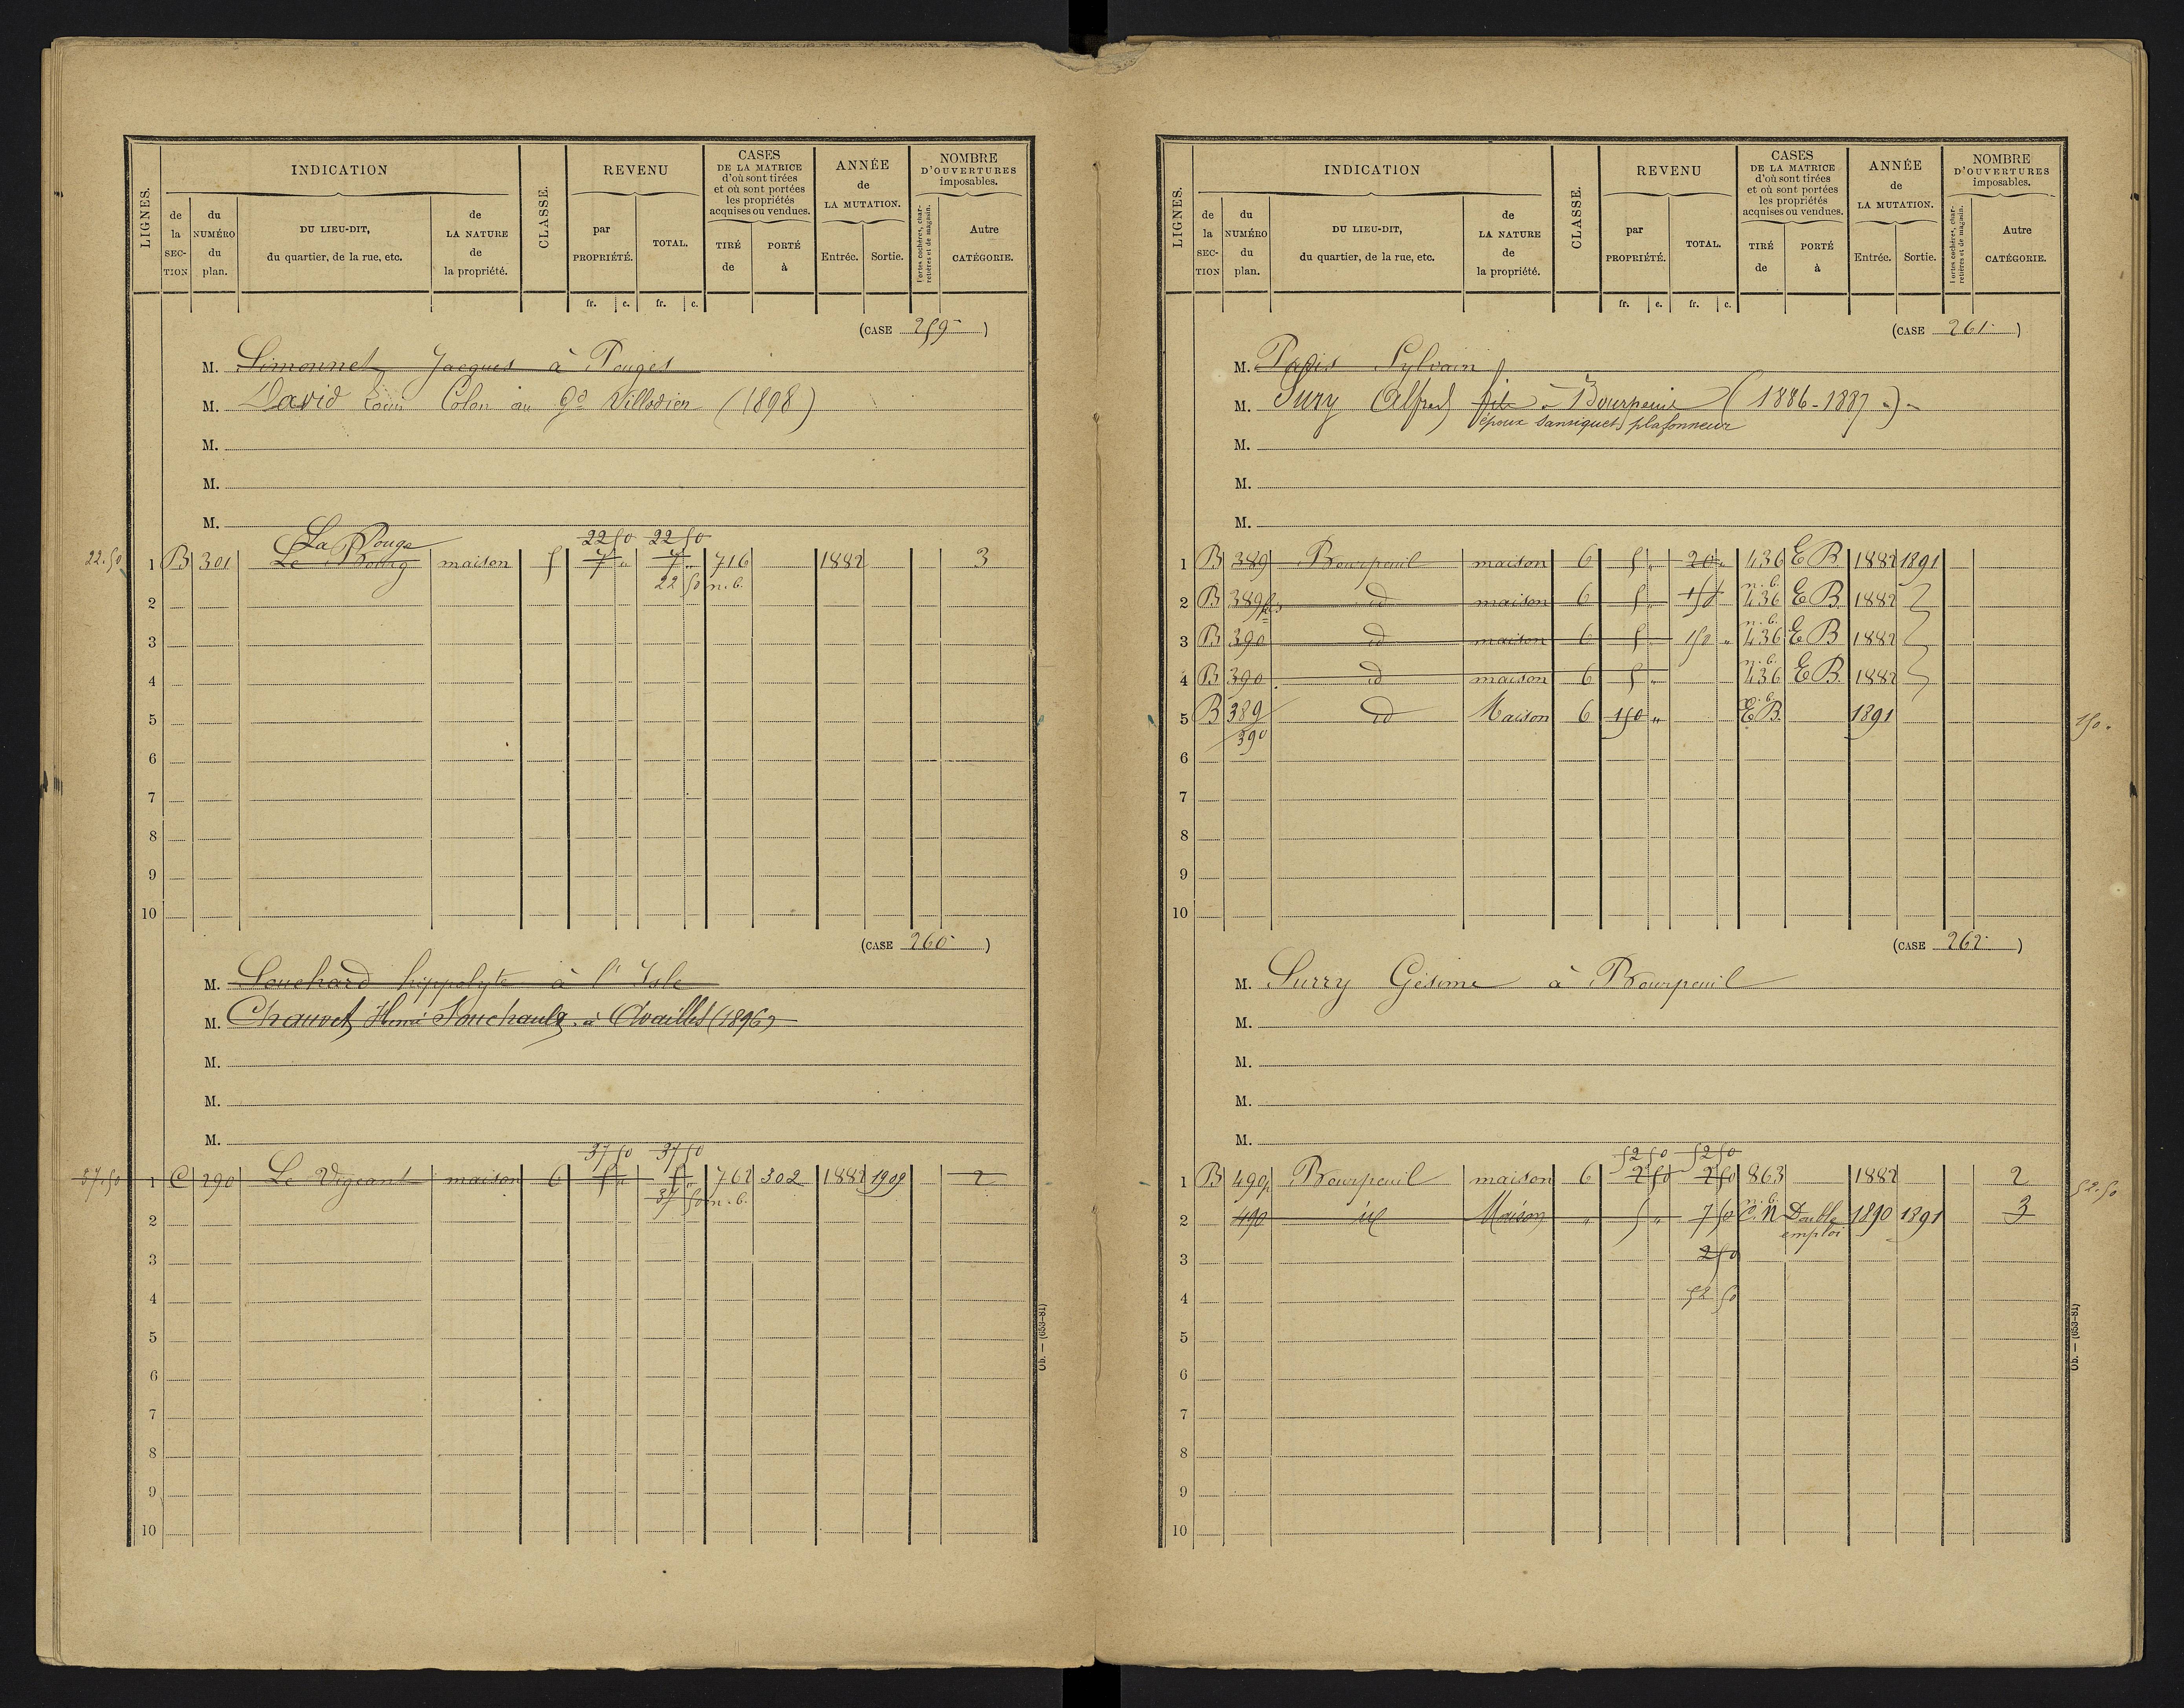 LIGNES. INDICATION CLASSE. REVENU CASES DE LA MATRICE d'où sont tirées et où sont portées les propriétés acquises ou vendues. ANNÉE de LA MUTATION. NOMBRE D'OUVERTURES imposables.
de la SECTION du NUMÉRO du plan. DU LIEU-DIT, du quartier, de la rue, etc. de LA NATURE de la propriété. par PROPRIÉTÉ. TOTAL. TIRÉ de PORTÉ à Entrée. Sortie. Portes cochères, charretières et de magasin. Autre CATÉGORIE.
fr. c. fr. c.
(CASE 259)
M. Simonnet Jacques à Pouges
M. David Louis Colon au Gd Villodier (1898)
M.
M.
M.
La Pouge 22 50 22 50
22.50 1 B 301 Le Bourg maison 5 7 " 7 " 716 1882 3
22 50 n.b.
2
3
4
5
6
7
8
9
10
(CASE 260)
M. Souchard hippolyte à l'Isle
M. Chauvet Henri à Availles (1896)
M.
M.
M.
37 50 37 50
37.50 1 C 290 Le Vigeant maison 6 5 " 5 " 762 302 1882 1909 2
37 50 n.b.
2
3
4
5
6
7
8
9
10
Ob. — (653-81)
LIGNES. INDICATION CLASSE. REVENU CASES DE LA MATRICE d'où sont tirées et où sont portées les propriétés acquises ou vendues. ANNÉE de LA MUTATION. NOMBRE D'OUVERTURES imposables.
de la SECTION du NUMÉRO du plan. DU LIEU-DIT, du quartier, de la rue, etc. de LA NATURE de la propriété. par PROPRIÉTÉ. TOTAL. TIRÉ de PORTÉ à Entrée. Sortie. Portes cochères, charretières et de magasin. Autre CATÉGORIE.
fr. c. fr. c.
(CASE 261)
M. Sylvain
M. Sury Alfred fils à Bourpeuil (1886-1887)
époux plafonneur
M.
M.
M.
1 B 389 Bourpeuil maison 6 5 " 20 " 436 E B 1882 1891
n.b.
2 B 389 bis id maison 6 5 " 150 436 E B 1882
n.b.
3 B 390 id maison 6 5 " 150 " 436 E B 1882
n.b.
4 B 390 id maison 6 5 " 436 E B 1882
n.b.
5 B 389 id Maison 6 150 " E B 1891 150.
390
6
7
8
9
10
(CASE 262)
M. Surry Gésime à Bourpeuil
M.
M.
M.
M.
52 50 52 50
1 B 490p Bourpeuil maison 6 2 50 2 50 863 1882 2 52.50
n.b.
2 490 id Maison " 5 " 7 50 C.N Double emploi 1890 1891 3
3 2 50
4 52 50
5
6
7
8
9
10
Ob. — (653-81)